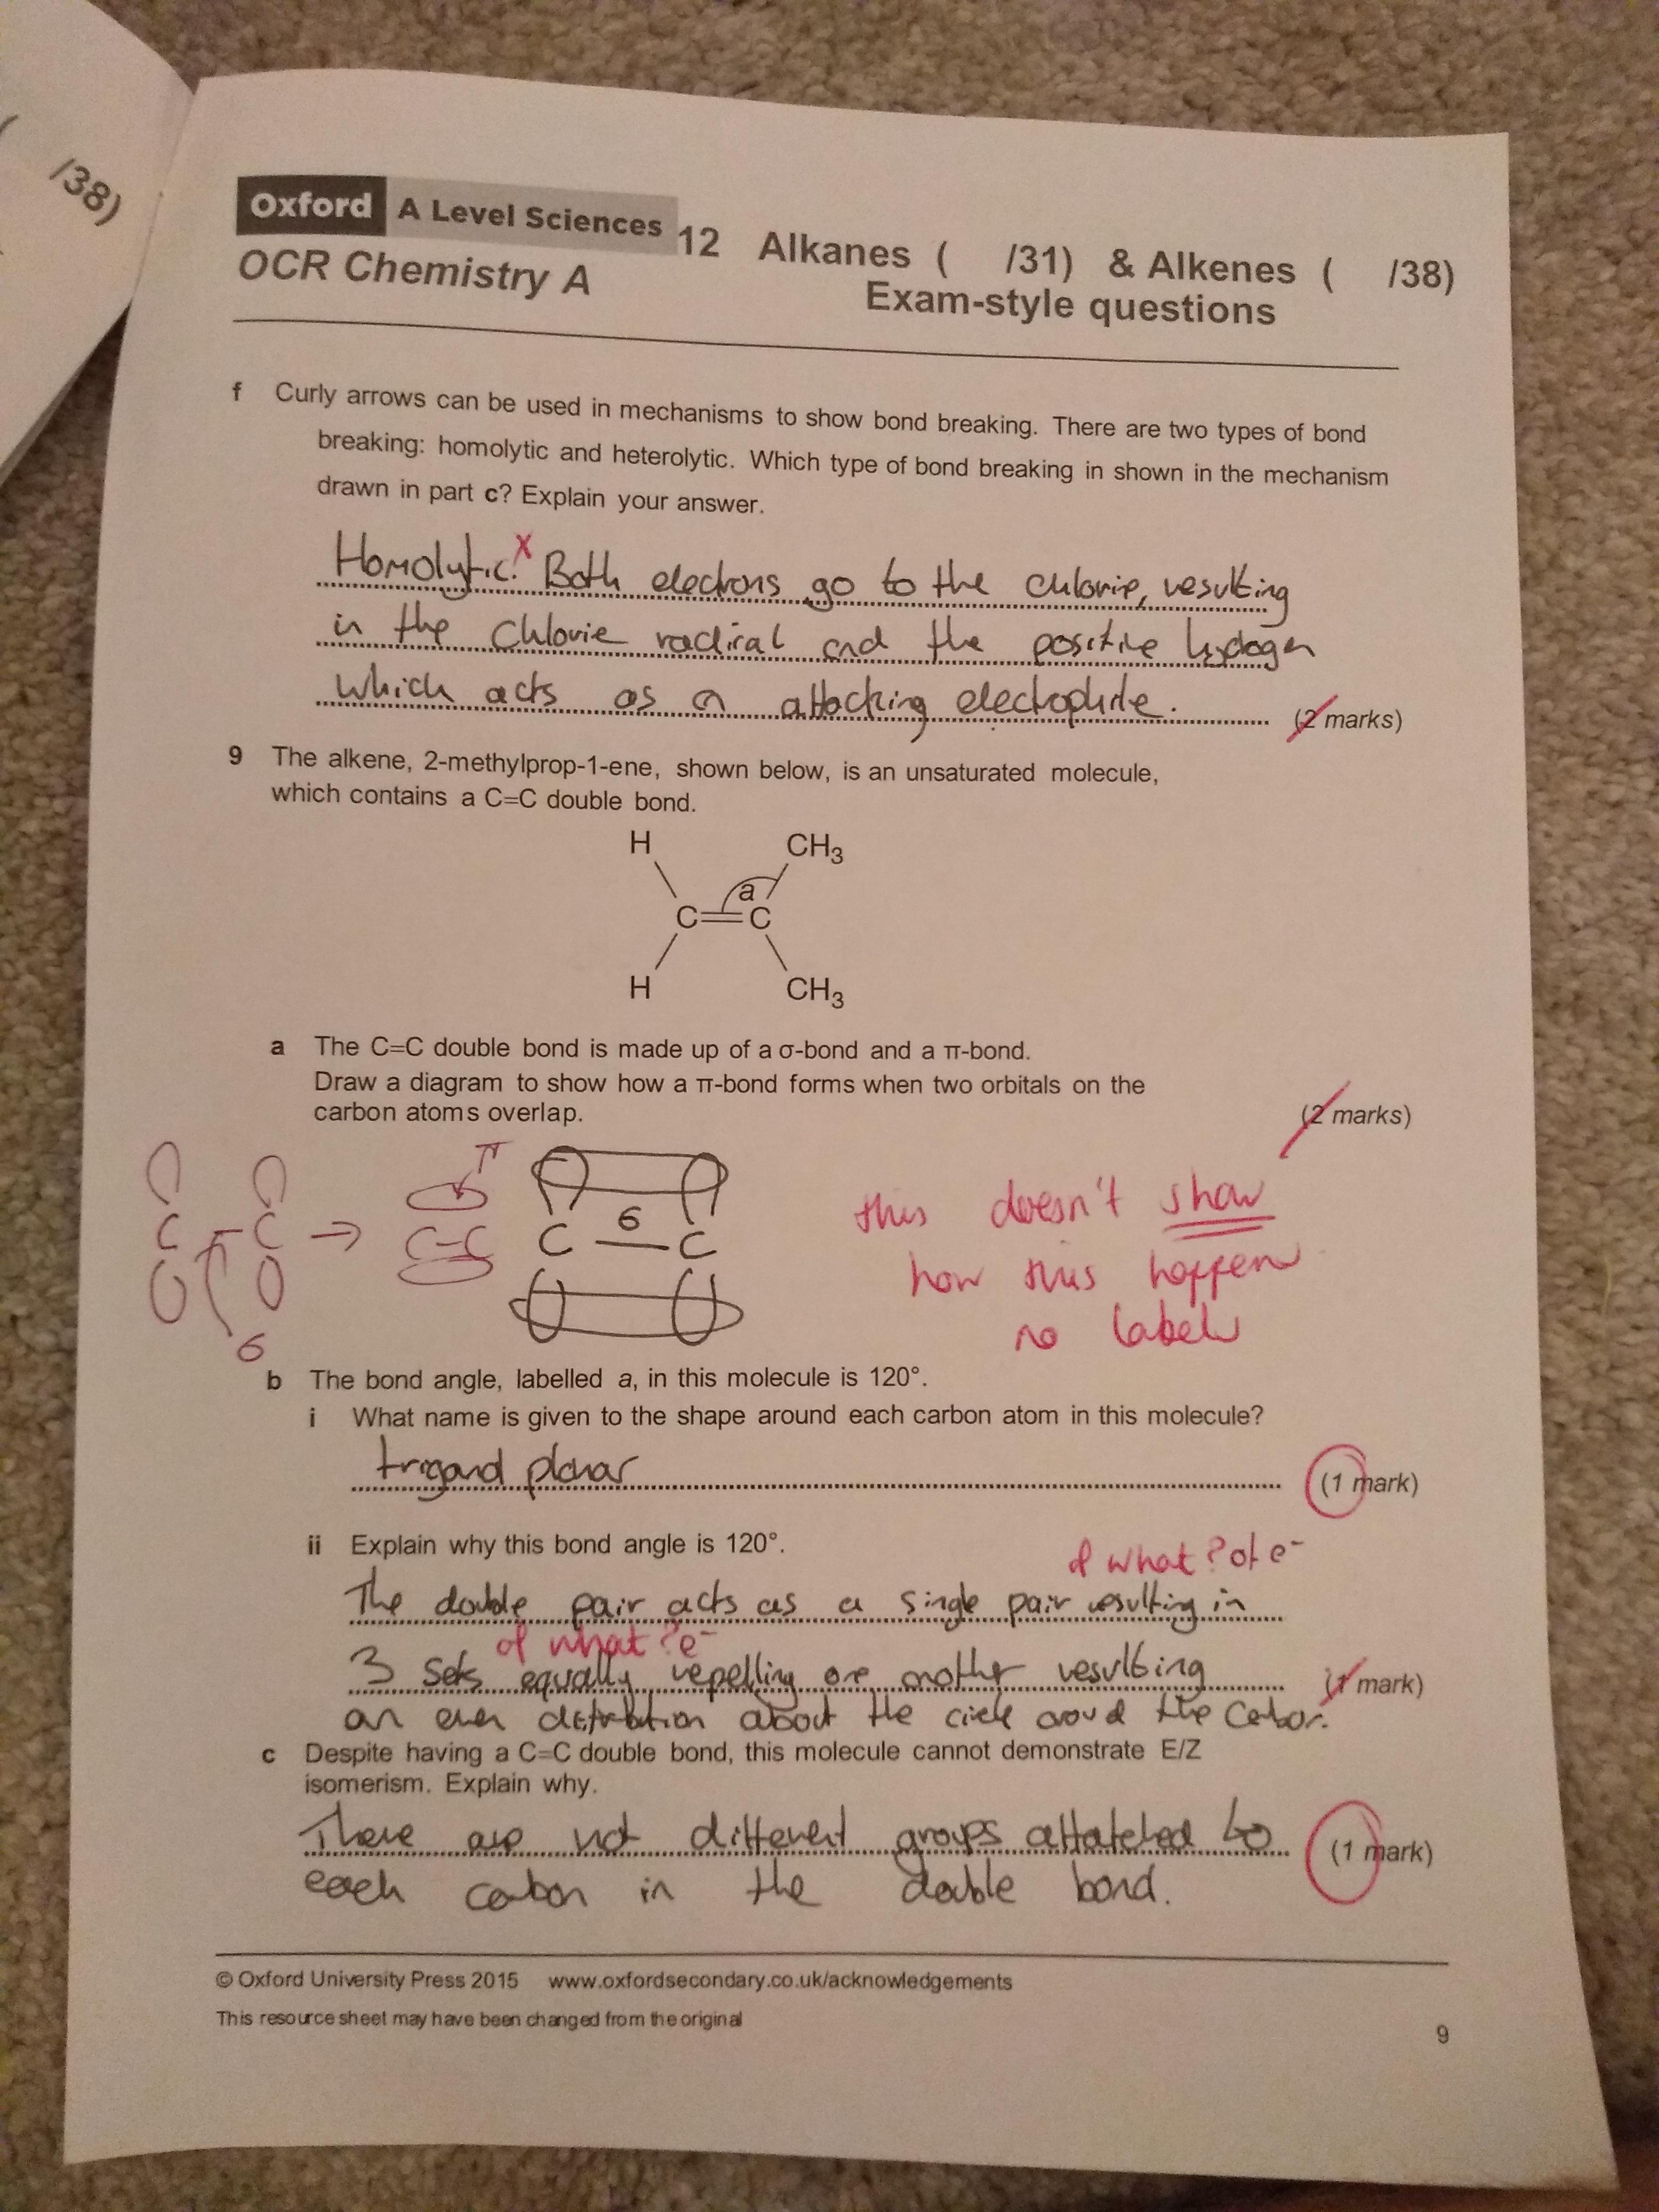 /38)
Oxford A Level Sciences
OCR Chemistry A
12 Alkanes ( /31) & Alkenes ( /38)
Exam-style questions
f Curly arrows can be used in mechanisms to show bond breaking. There are two types of bond
breaking: homolytic and heterolytic. Which type of bond breaking in shown in the mechanism
drawn in part c? Explain your answer.
Homolytic. x Both electrons go to the chlorie, resulting
in the chlorie radical and the positive hydogen
which acts as a attacking electrophile.
(2 marks)
9 The alkene, 2-methylprop-1-ene, shown below, is an unsaturated molecule,
which contains a C=C double bond.
H CH3
a
C=C
H CH3
a The C=C double bond is made up of a σ-bond and a π-bond.
Draw a diagram to show how a π-bond forms when two orbitals on the
carbon atoms overlap.
(2 marks)
π
C - C → C-C C 6 — C
6
this doesn't show
how this happen
no labels
b The bond angle, labelled a, in this molecule is 120°.
i What name is given to the shape around each carbon atom in this molecule?
trigonal planar
(1 mark)
ii Explain why this bond angle is 120°.
of what? of e-
The double pair acts as a single pair resulting in
of what? e-
3 sets equally repelling one another resulting
(1 mark)
an even distribution about the circle around the carbon.
c Despite having a C=C double bond, this molecule cannot demonstrate E/Z
isomerism. Explain why.
There are not different groups attatched to
(1 mark)
each carbon in the double bond.
© Oxford University Press 2015 www.oxfordsecondary.co.uk/acknowledgements
This resource sheet may have been changed from the original
9